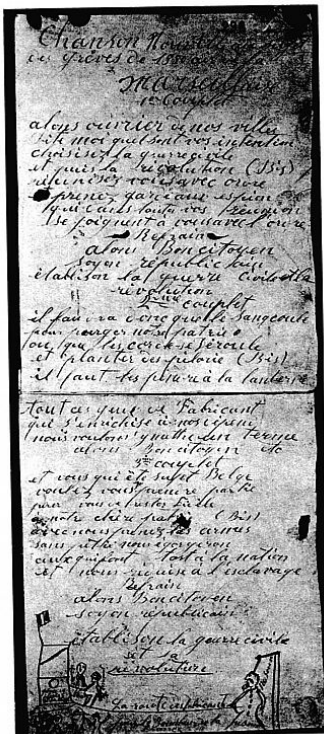 Chanson Nouvelle
des grèves de 1880
Marseillaise
1er Couplet
alons ouvrier de nos villes
dite moi quel sont vos intention
choisisez la guerre civile
et puis la révolution (Bis)
réunisez vous avec ordre
prenez garde aux espion
qui dans toutes vos réunion
se joignant à vous avec ordre
Refrain
alons Boncitoyen
soyon républicain
établison la guerre civile et la
révolution
2eme couplet
il faudra donc que le sang coule
pour purger notre patrie
et planter des (Bis)
il faut les pendre à la lanterne
tout ces gueux de Fabricant
qui s'enrichise à nos dépens
nous voulons y mettre un terme
alons Boncitoyen etc
3me couplet
et vous qui ête sujet Belge
voulez vous prendre partie
pour
à notre chère patrie (Bis)
avec nous prenez les armes
sans pitié nous égorgeron
ceux qui font tort à la nation
et nous à l'esclavage
Refrain
alons Boncitoyen
soyon républicain
établison la guerre civile
et la
révolution